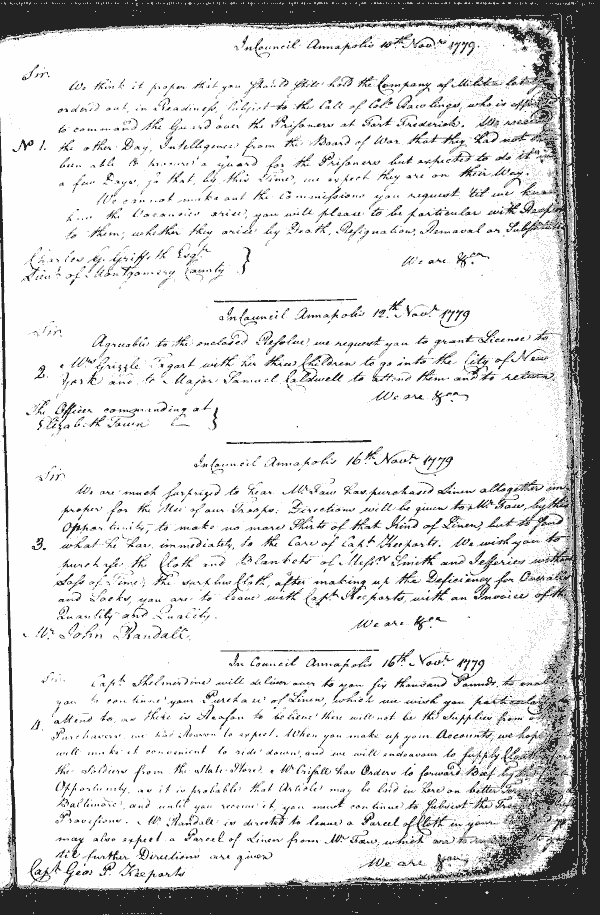 In Council Annapolis 10th Novr 1779.
Sir.
We think it proper that you should still hold the Company of Militia lately
ordered out, in Readiness, subject to the Call of Colo Rawlings, who is
to command the Guard over the Prisoners at Fort Frederick. We received
No 1. the other Day, Intelligence from the Board of War that they had not
been able to procure a guard for the Prisoners but expected to do it in
a few Days, so that, by this Time, we expect they are on their Way.
We cannot make out the Commissions you request 'til we know
how the Vacancies arise, you will please to be particular with Respect
to them, whether they arise by Death, Resignation, Removal or
Charles G. Griffith Esqr
Lieut of Montgomery County
We are &ca
In Council Annapolis 12th Novr 1779
Sir
Agreable to the enclosed Resolve, we request you to grant License to
2. Mrs Grizzle Fogart with her three Children to go into the City of New
York and to Major Samuel Caldwell to attend them and to return
We are &ca
The Officer commanding at
Elizabeth Town
In Council Annapolis 16th Novr 1779
Sir
We are much surprized to hear Mr Faw has purchased Linen altogether im
proper for the Use of our Troops; Directions will be given to Mr Faw, by this
Opportunity, to make no more Shirts of that Kind of Linen, but to send
3. what he has, immediately, to the Care of Capt Keeports. We wish you to
purchase the Cloth and Blankets of Messrs Smith and Jefferies without
Loss of Time; the surplus Cloth, after making up the Deficiency for Overalls
and Socks, you are to leave with Capt Keeports, with an Invoice of the
Quantity and Quality.
We are &ca
Mr John Randall.
In Council Annapolis 16th Novr 1779
Sir
Capt Shelmerdine will deliver over to you six thousand Pounds, to enable
you to continue your Purchase of Linen, which we wish you particularly to
4. attend to, as there is Reason to believe there will not be the Supplies from
Purchasers we had Reason to expect. When you make up your Accounts, we hope
will make it convenient to ride down, and we will endeavour to supply
the Soldiers from the State Store. Mr Crisall has Orders to forward Beef by
Opportunity, as it is probable that Article may be laid in here on better
Baltimore, and until you receive it, you must continue to
Provisions. Mr Randall is directed to leave a Parcel of Cloth in your
may also expect a Parcel of Linen from Mr Faw, which
til further Directions are given
We are
Capt Geoe P. Keeports